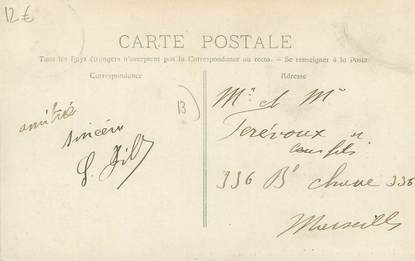 12 €
CARTE POSTALE
Tous les Pays étrangers n'acceptent pas la Correspondance au recto. — Se renseigner à la Poste
Correspondance
Adresse
13
amitié
sincère
Mr et Mme
336 Bd Chave 336
Marseille